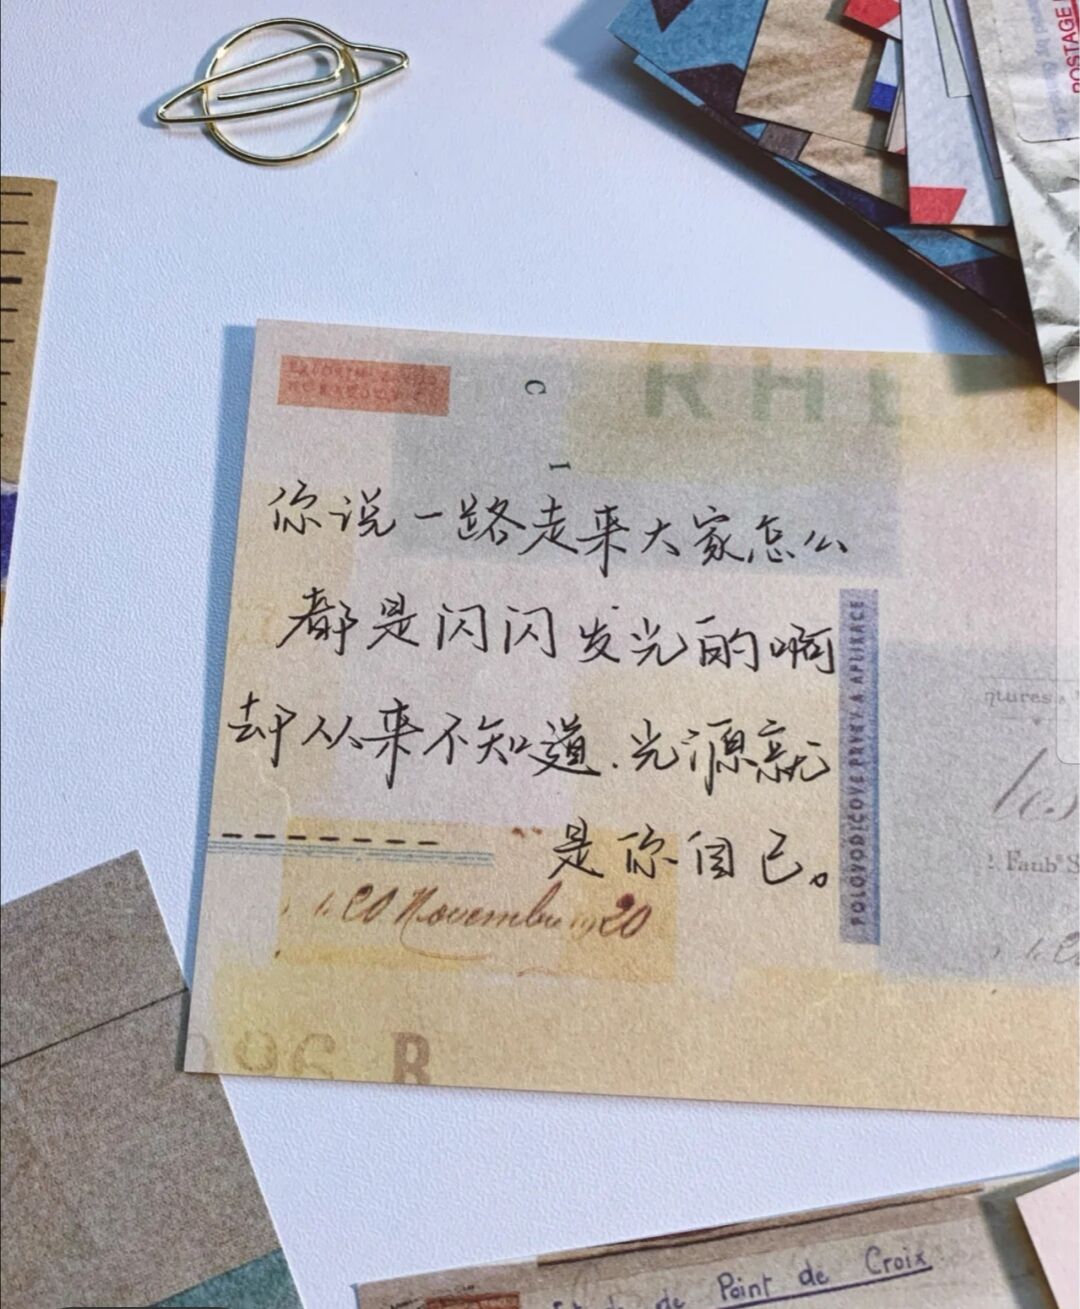 POSTAGE
C
RH
I
你说一路走来大家怎么
都是闪闪发光的啊
却从来不知道.光源就
是你自己。
POLOVODIČOVÉ PRVKY A APLIKACE
ntures
les
Faub S
20 Novembre 1920
096 R
de Point de Croix